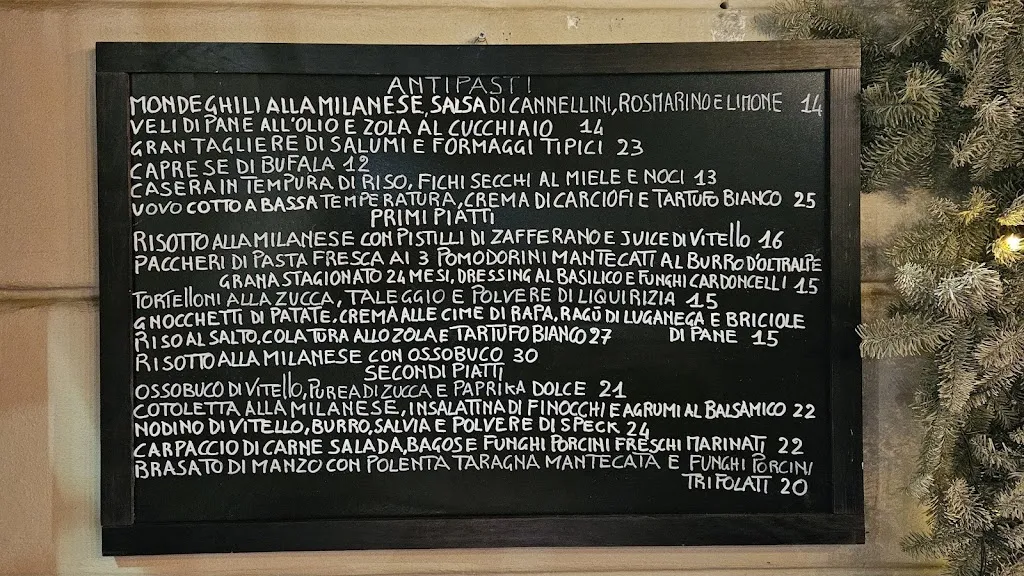 ANTIPASTI
MONDEGHILI ALLA MILANESE, SALSA DI CANNELLINI, ROSMARINO E LIMONE 14
VELI DI PANE ALL'OLIO E ZOLA AL CUCCHIAIO 14
GRAN TAGLIERE DI SALUMI E FORMAGGI TIPICI 23
CAPRESE DI BUFALA 12
CASERA IN TEMPURA DI RISO, FICHI SECCHI AL MIELE E NOCI 13
UOVO COTTO A BASSA TEMPERATURA, CREMA DI CARCIOFI E TARTUFO BIANCO 25
PRIMI PIATTI
RISOTTO ALLA MILANESE CON PISTILLI DI ZAFFERANO E JUICE DI VITELLO 16
PACCHERI DI PASTA FRESCA AI 3 POMODORINI MANTECATI AL BURRO D'OLTRALPE
GRANA STAGIONATO 24 MESI, DRESSING AL BASILICO E FUNGHI CARDONCELLI 15
TORTELLONI ALLA ZUCCA, TALEGGIO E POLVERE DI LIQUIRIZIA 15
GNOCCHETTI DI PATATE. CREMA ALLE CIME DI RAPA, RAGÙ DI LUGANEGA E BRICIOLE
RISO AL SALTO. COLATURA ALLO ZOLA E TARTUFO BIANCO 27 DI PANE 15
RISOTTO ALLA MILANESE CON OSSOBUCO 30
SECONDI PIATTI
OSSOBUCO DI VITELLO, PUREA DI ZUCCA E PAPRIKA DOLCE 21
COTOLETTA ALLA MILANESE, INSALATINA DI FINOCCHI E AGRUMI AL BALSAMICO 22
NODINO DI VITELLO, BURRO, SALVIA E POLVERE DI SPECK 24
CARPACCIO DI CARNE SALADA, BAGOS E FUNGHI PORCINI FRESCHI MARINATI 22
BRASATO DI MANZO CON POLENTA TARAGNA MANTECATA E FUNGHI PORCINI
TRIFOLATI 20